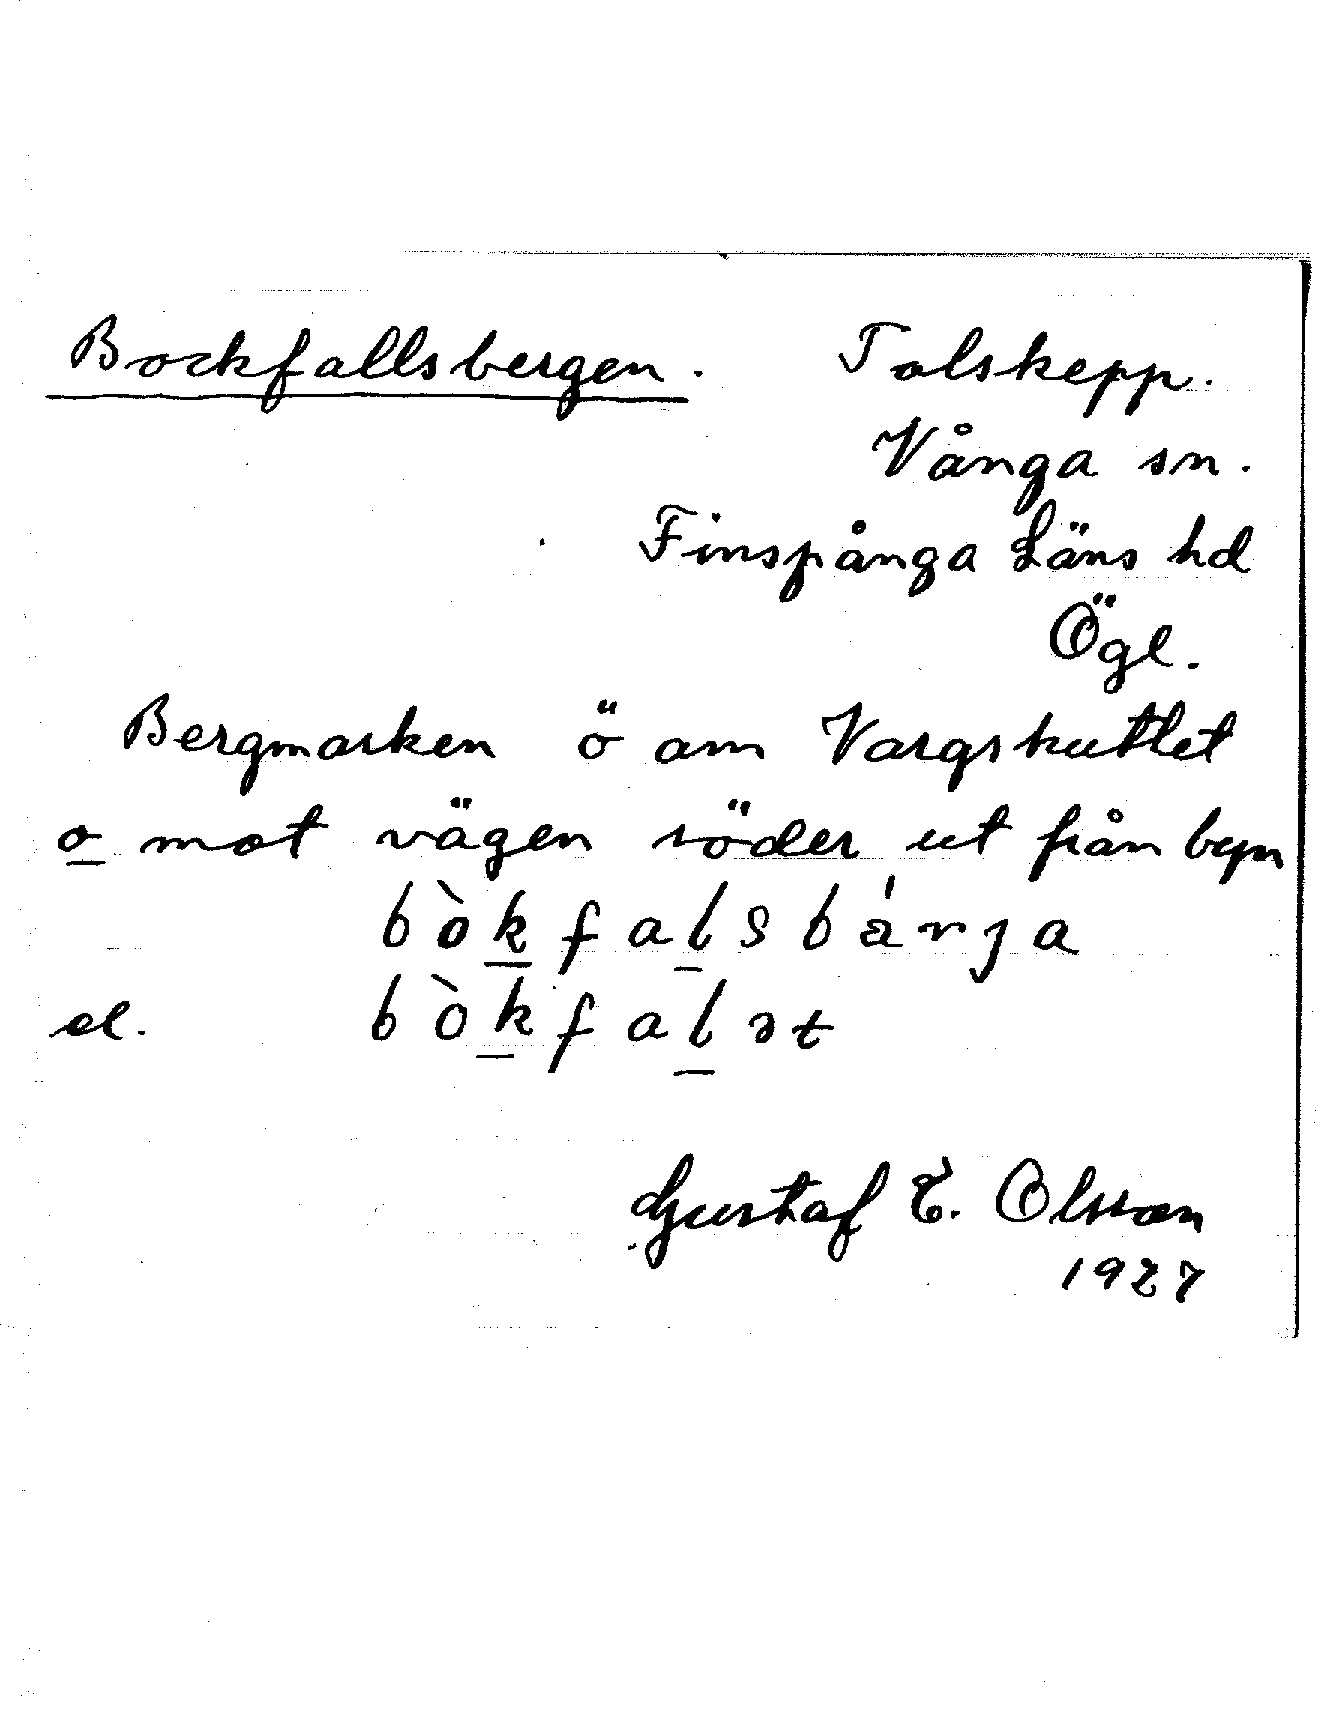 Bockfallsbergen. Tolskepp.
Vånga sn.
Finspånga Läns hd
Ögl.
Bergmarken ö om Vargskuttet
o mot vägen söder ut från byn
bòkfalsbárja
el. bòkfalət
Gustaf E. Olsson
1927